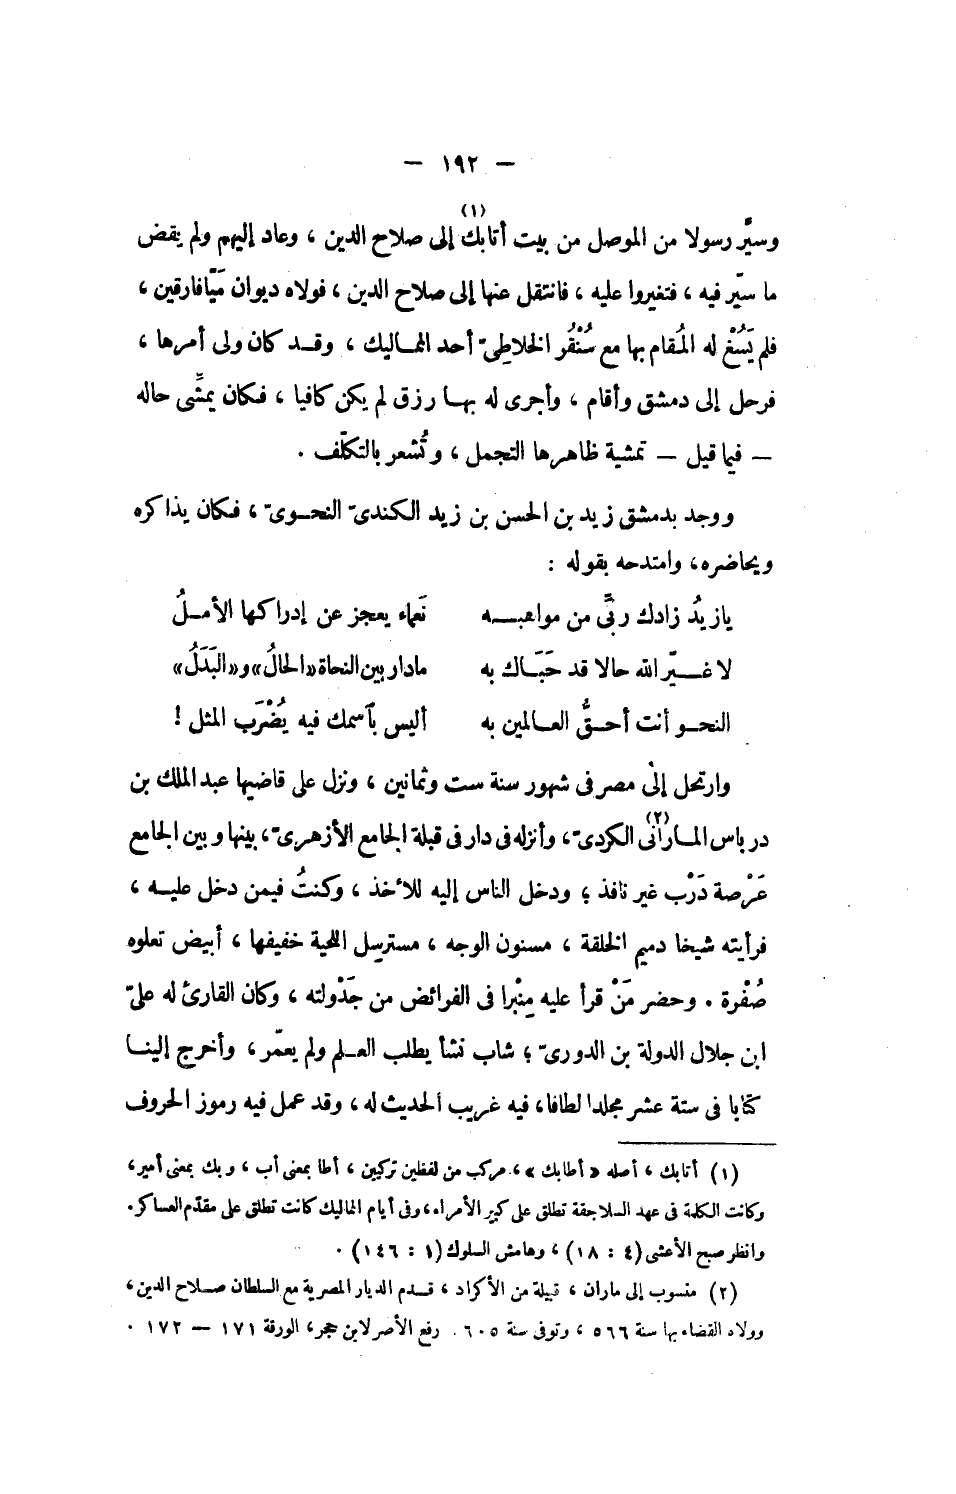 — ١٩٢ —
وسيَّر رسولا من الموصل من بيت أتابك (١) إلى صلاح الدين ، وعاد إليهم ولم يقض
ما سيّر فيه ، فتغيروا عليه ، فانتقل عنها إلى صلاح الدين ، فولاه ديوان مَيّافارقين ،
فلم يَسُغْ له المُقام بها مع سُنْقُر الخلاطِىّ أحد المماليك ، وقد كان ولى أمرها ،
فرحل إلى دمشق وأقام ، وأجرى له بها رزق لم يكن كافيا ، فكان يمشِّى حاله
— فيما قيل — تمشية ظاهرها التجمل ، وتُشعر بالتكلّف .
ووجد بدمشق زيد بن الحسن بن زيد الكندىّ النحوىّ ، فكان يذاكره
ويحاضره، وامتدحه بقوله :
يازيدُ زادك ربِّى من مواهبه نَعماء يعجز عن إدراكها الأملُ
لا غيّر الله حالا قد حَبَاك به مادار بين النحاة «الحالُ» و«البَدَلُ»
النحو أنت أحقُّ العالمين به أليس بآسمك فيه يُضْرَب المثل !
وارتحل إلى مصر فى شهور سنة ست وثمانين ، ونزل على قاضيها عبد الملك بن
درباس المارانى (٢) الكردىّ ، وأنزله فى دار فى قبلة الجامع الأزهرىّ ، بينها وبين الجامع
عَرْصة دَرْب غير نافذ ؛ ودخل الناس إليه للأخذ ، وكنتُ فيمن دخل عليه ،
فرأيته شيخا دميم الخلقة ، مسنون الوجه ، مسترسِل اللحية خفيفها ، أبيض تعلوه
صُفْرة . وحضر مَنْ قرأ عليه مِنْبرا فى الفوائض من جَدْولته ، وكان القارئ له علىّ
ابن جلال الدولة بن الدورىّ ؛ شاب نشأ يطلب العلم ولم يعمّر ، وأخرج إلينا
كتابا فى ستة عشر مجلدا لطافا ، فيه غريب الحديث له ، وقد عمل فيه رموز الحروف
(١) أتابك ، أصله « أطابك » ، مركب من لفظين تركيين ، أطا بمعنى أب ، وبك بمعنى أمير،
وكانت الكلمة فى عهد السلاجقة تطلق على كبير الأمراء ، وفى أيام المماليك كانت تطلق على مقدّم العساكر .
وانظر صبح الأعشى (٤ : ١٨) ، وهامش السلوك (١ : ١٤٦) .
(٢) منسوب إلى ماران ، قبيلة من الأكراد ، قدم الديار المصرية مع السلطان صلاح الدين ،
وولاه القضاء بها سنة ٥٦٦ ، وتوفى سنة ٦٠٥ . رفع الأصر لابن حجر ، الورقة ١٧١ — ١٧٢ .